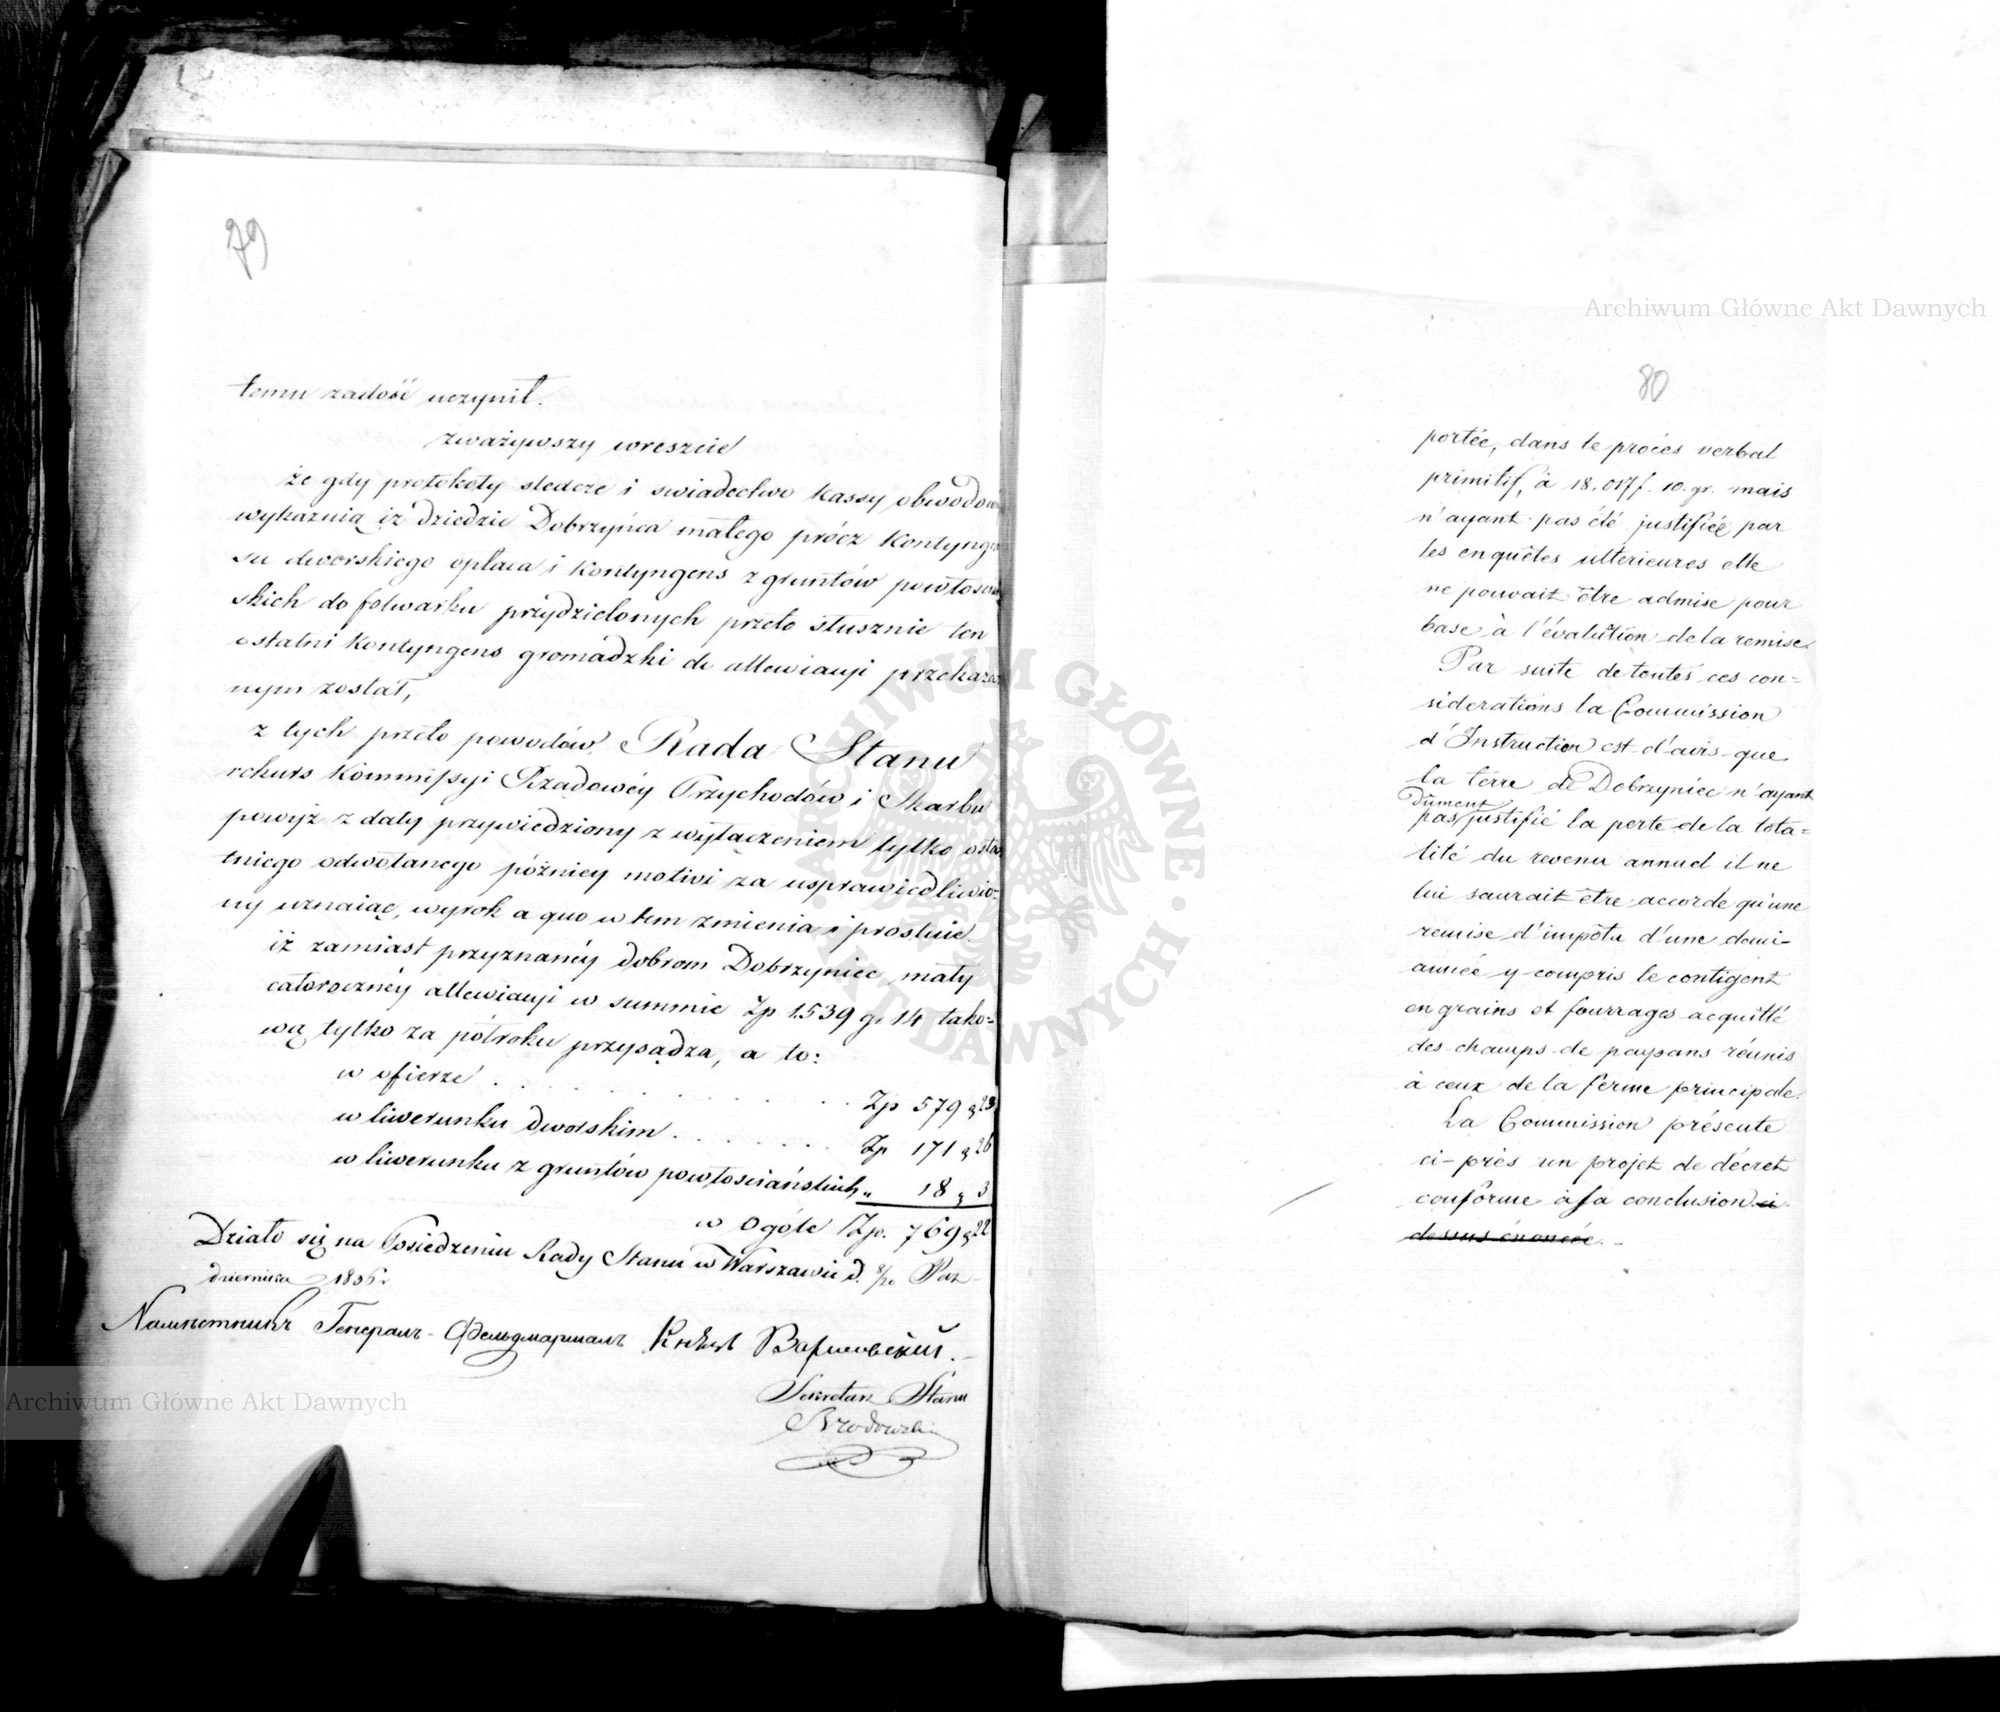 79
temu zadość uczynił.
zważywszy wreszcie
że gdy protokoły sledcze i swiadectwo Kassy obwodow
wykaznią iz dziedzic Dobrzyńca małego prócz Kontynge
su dworskiego opłaca i Kontyngens z gruntów powłosciań
skich do folwarku przydzielonych przeto słusznie ten
ostatni Kontyngens gromadzki do allewiacyi przekaza
nym został,
z tych przeto powodów, Rada Stanu
rekurs Kommissyi Rządowéy Przychodów i Skarbu
powyż z daty przywiedziony z wyłączeniem tylko osta
tniego odwołanego późniey motivi za usprawiedliwio-
ny uznaiąc, wyrok a quo w tem zmienia i prostuie.
iż zamiast przyznanéy dobrom Dobrzyniec mały
całorocznéy allewiacyi w summie Zp 1539 gr 14 tako-
wą tylko za półroku przysądza, a to:
w ofierze . . . . . . . . . . Zp 579 g 23
w liwerunku dworskim . . . . . . Zp 171 g 26
w liwerunku z gruntów powłosciańskich „ 18 g 3
w Ogóle Zp. 769 g 22
Działo się na Posiedzeniu Rady Stanu w Warszawie d. 8/20 Paz-
dziernika 1836 r
Намѣстникъ Генералъ-Фельдмаршалъ Князь Варшавскій.
Sekretarz Stanu
Brodowski
80
portée, dans le procès verbal
primitif, à 18.017 f. 10. gr. mais
n'ayant pas été justifiée par
les enquêtes ulterieures elle
ne pouvait être admise pour
base à l'évalution de la remise.
Par suite de toutes ces con=
siderations la Commission
d'Instruction est d'avis que
la terre de Dobrzyniec n'ayant
dûment
pas justifié la perte de la tota=
lité du revenu annuel il ne
lui saurait être accordé qu'une
remise d'impôts d'une demi-
année y compris le contigent
en grains et fourrages acquitté
des champs de paysans réunis
à ceux de la ferme principale.
La Commission présente
ci-près un projet de décret
conforme à sa conclusion ci
dessus énoncée.
Archiwum Główne Akt Dawnych
Archiwum Główne Akt Dawnych
ARCHIWUM GŁÓWNE AKT DAWNYCH